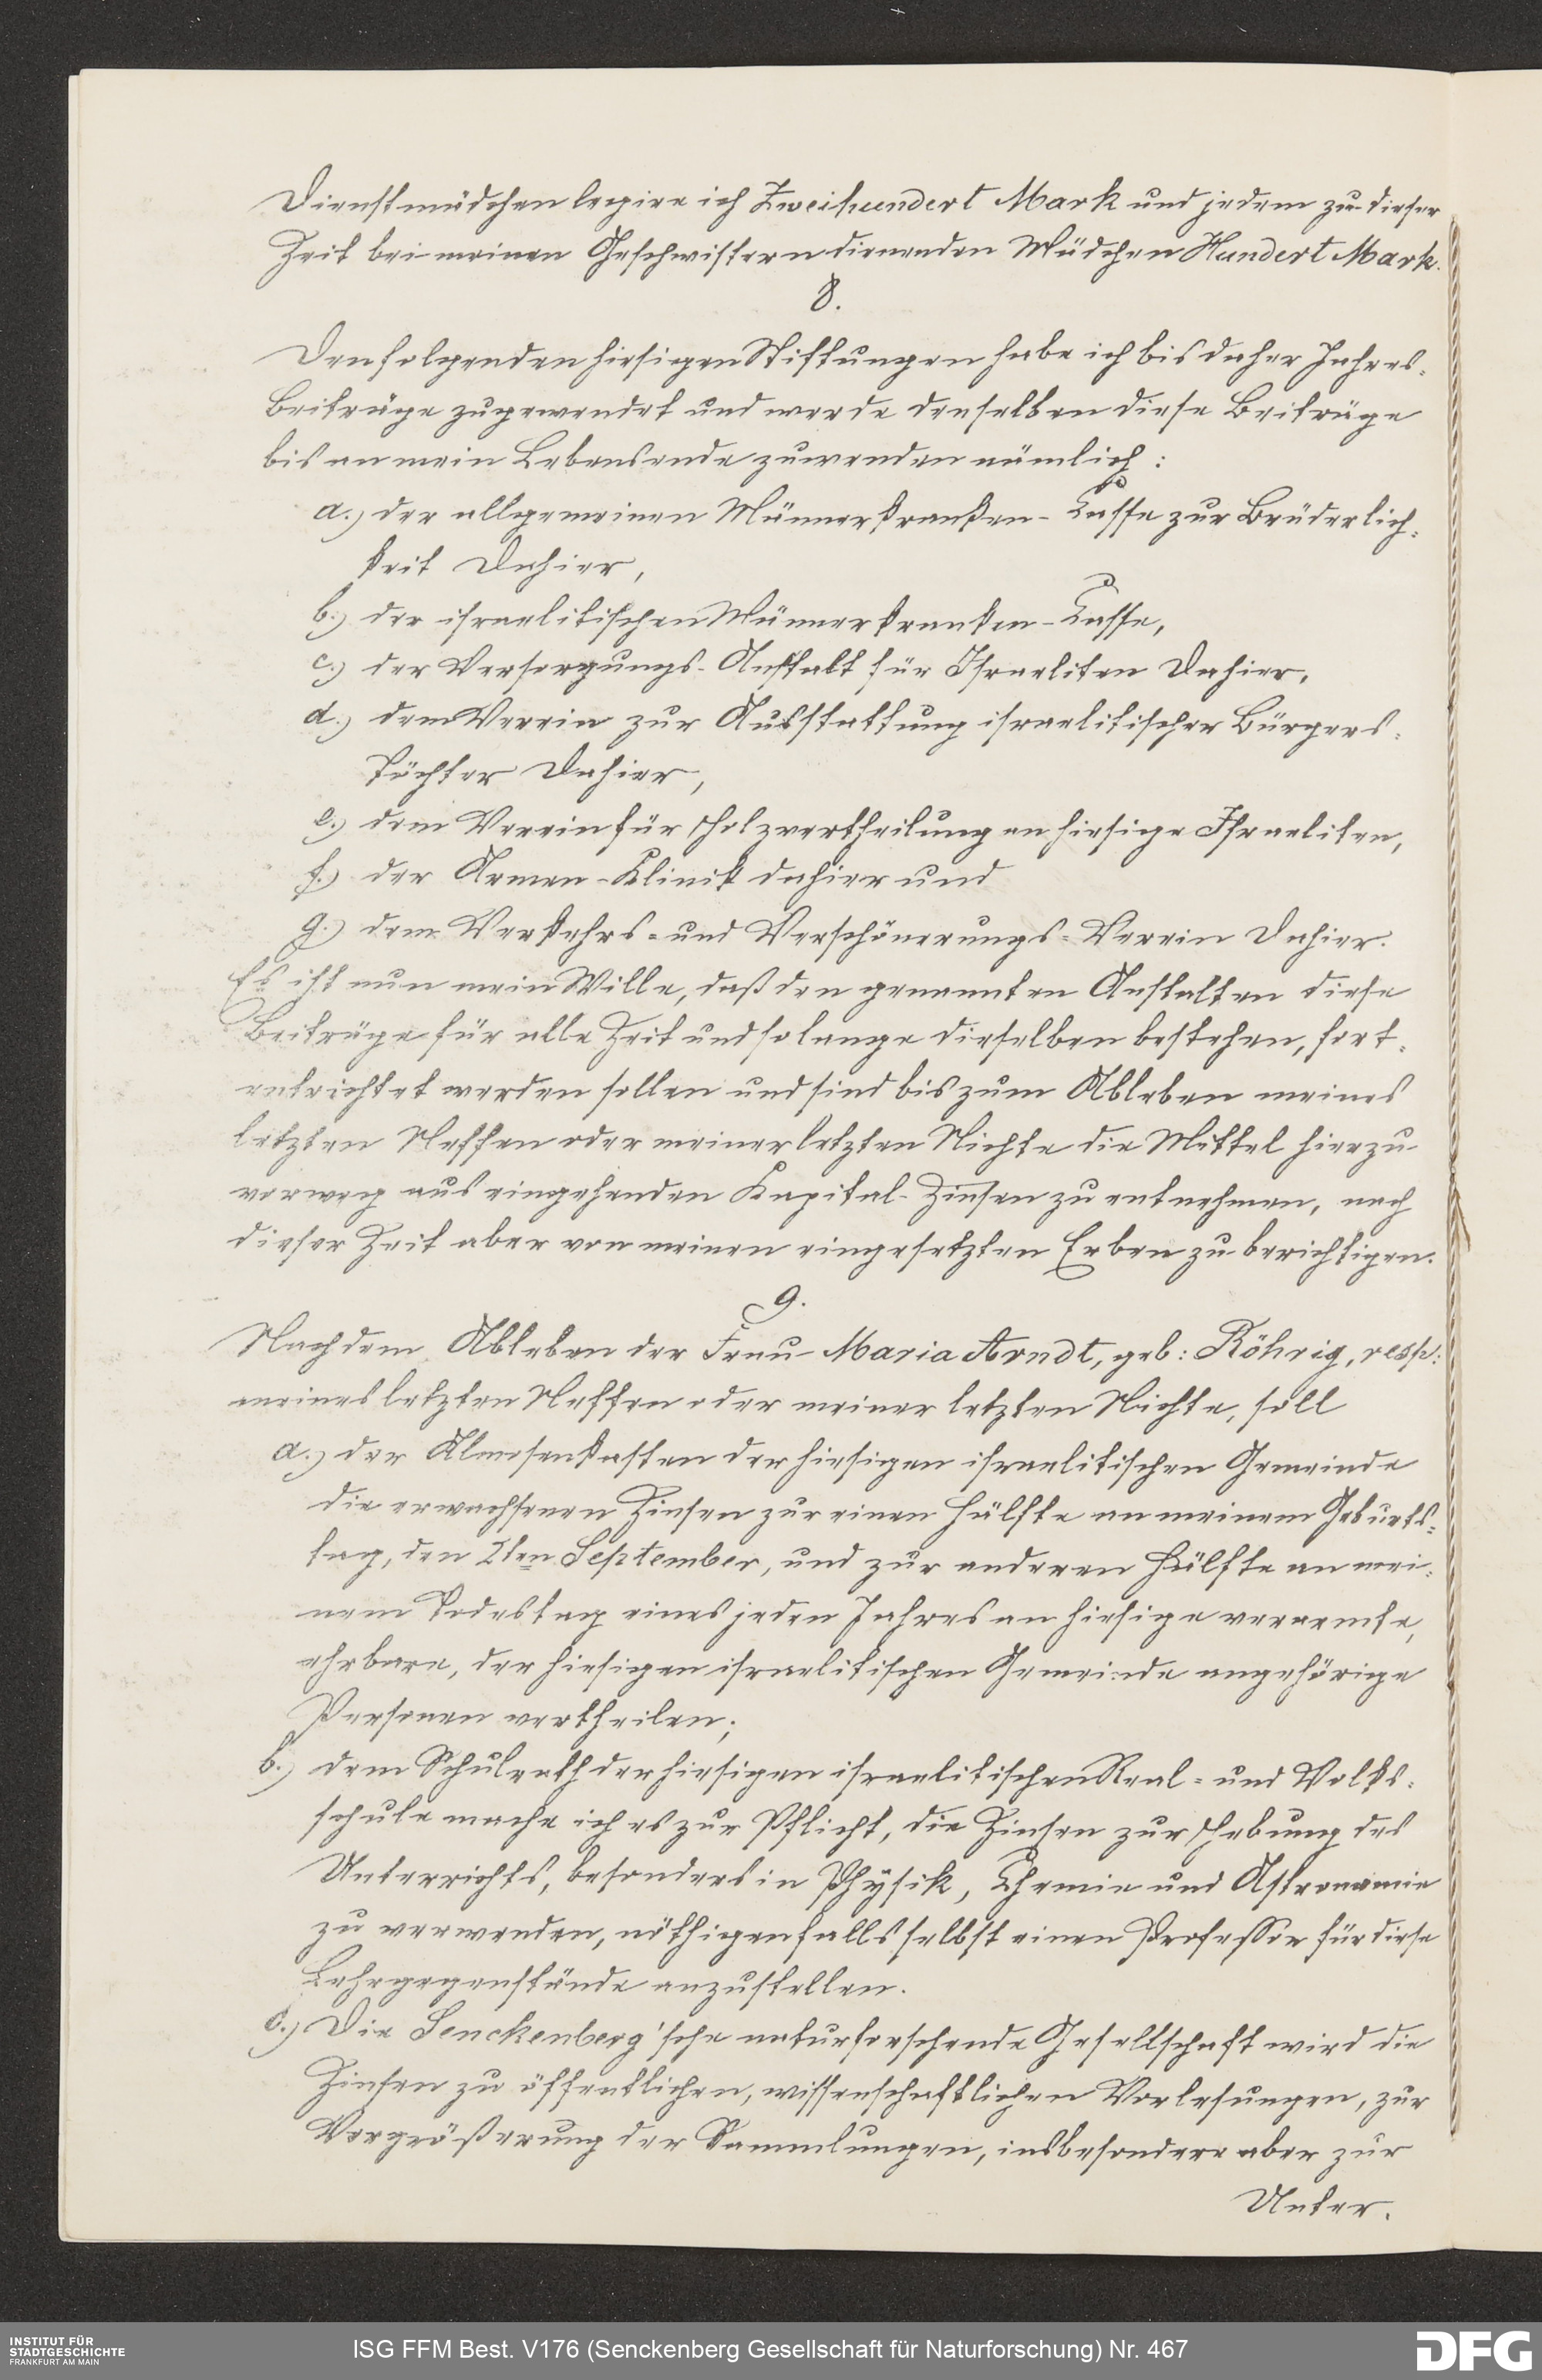 Dienstmädchen legire ich Zweihundert Mark und jedem zu dieser
Zeit bei meinen Geschwistern dienenden Mädchen Hundert Mark.
8.
Den folgenden hiesigen Stiftungen habe ich bis daher Jahres-
Beiträge zugewendet und werde denselben diese Beiträge
bis an mein Lebensende zuwenden nämlich:
a.) der allgemeinen Männerkranken-Casse zur Brüderlich-
keit dahier,
b.) der israelitischen Männerkranken-Casse,
c.) der Versorgungs-Anstalt für Israeliten dahier,
d.) dem Verein zur Ausstattung israelitischer Bürgers-
töchter dahier,
e.) dem Verein für Holzvertheilung an hiesige Israeliten,
f.) der Armen-Klinik dahier und
g.) dem Verkehrs- und Verschönerungs-Verein dahier.
Es ist nun mein Wille, daß den genannten Anstalten diese
Beiträge für alle Zeit und solange dieselben bestehen, fort-
entrichtet werden sollen und sind bis zum Ableben meines
letzten Neffen oder meiner letzten Nichte die Mittel hierzu
vorweg aus eingehenden Kapital-Zinsen zu entnehmen, nach
dieser Zeit aber von meinen eingesetzten Erben zu berichtigen.
9.
Nach dem Ableben der Frau Maria Arndt, geb: Röhrig, resp:
meines letzten Neffen oder meiner letzten Nichte, soll
a.) der Almosenkasten der hiesigen israelitischen Gemeinde
die erwachsenen Zinsen zur einen Hälfte an meinem Geburts-
tag, den 2ten September, und zur anderen Hälfte an mei-
nem Todestag eines jeden Jahres an hiesige verarmte,
ehrbare, der hiesigen israelitischen Gemeinde angehörige
Personen vertheilen;
b.) dem Schulrath der hiesigen israelitischen Real- und Volks-
schule mache ich es zur Pflicht, die Zinsen zur Hebung des
Unterrichts, besonders in Physik, Chemie und Astronomie
zu verwenden, nöthigenfalls selbst einen Professor für diese
Lehrgegenstände anzustellen.
c.) Die Senckenberg'sche naturforschende Gesellschaft wird die
Zinsen zu öffentlichen, wissenschaftlichen Vorlesungen, zur
Vergrößerung der Sammlungen, insbesondere aber zur
Unter-
INSTITUT FÜR
STADTGESCHICHTE
FRANKFURT AM MAIN
ISG FFM Best. V176 (Senckenberg Gesellschaft für Naturforschung) Nr. 467
DFG